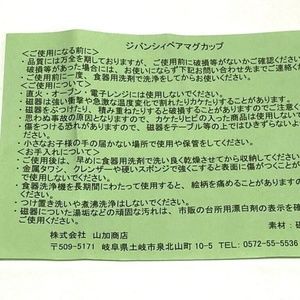 ジバンシィペアマグカップ
＜ご使用になる前に＞
・品質には万全を期しておりますが、ご使用前に破損等がないかご確認ください。
破損等があった場合には、お使いにならず下記お問い合わせ先までご連絡ください。
・ご使用前に一度、食器用洗剤で洗浄をしてからお使いください。
＜ご使用について＞
・直火・オーブン・電子レンジには使用しないでください。
・磁器は強い衝撃や急激な温度変化で割れたりカケたりすることがあります。
・磁器をぶつけたり、積み重ねたりすると破損することがあります。
・思わぬ事故の原因となりますので、カケたりヒビの入った商品は使用しないでください。
・傷をつける恐れがありますので、磁器をテーブル等の上ではひきずらないでください。
・小さなお子様の手の届かない場所で使用や保管をしてください。
＜お手入れについて＞
・ご使用後は、早めに食器用洗剤で洗い良く乾燥させてから収納してください。
・金属タワシ、クレンザーや硬いスポンジで強くこすると表面に傷がつくことが
・食器洗浄機を長期間にわたって使用しますと、絵柄を痛めることがあります。
・つけ置き洗いや煮沸洗浄はしないでください。
・磁器についた湯垢などの頑固な汚れは、市販の台所用漂白剤の表示を確
素材：磁
株式会社 山加商店
〒509-5171 岐阜県土岐市泉北山町 10-5 TEL：0572-55-5536